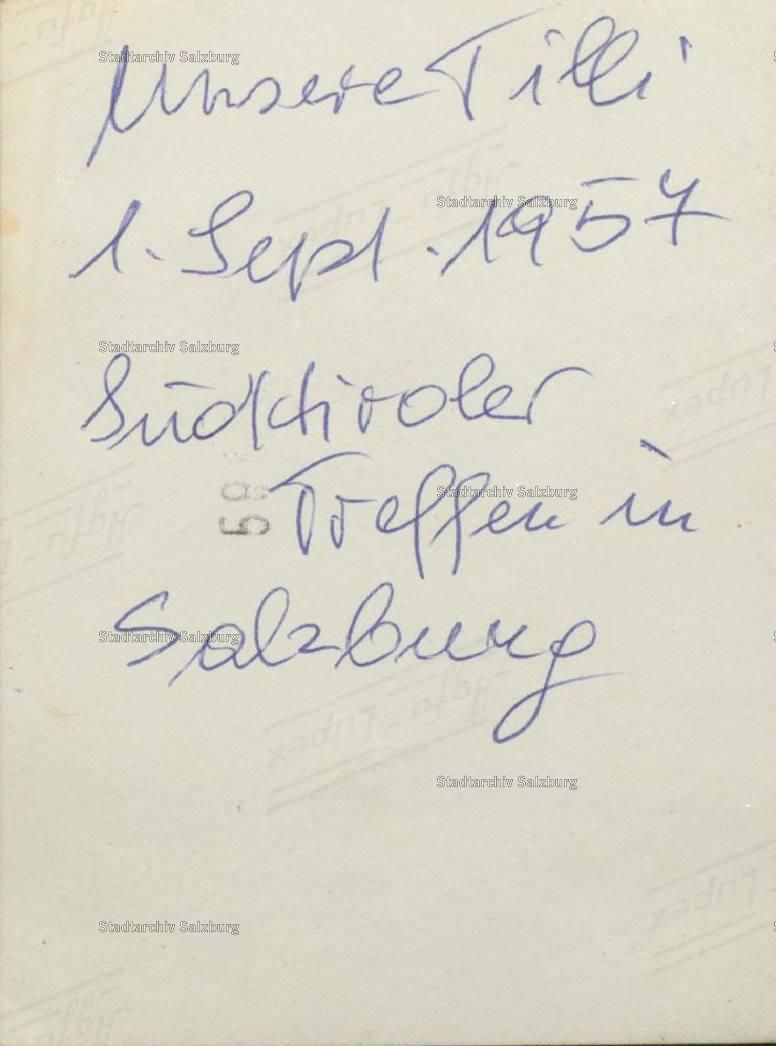 Unsere Tilli
1. Sept. 1957
Südtiroler
59 Treffen in
Salzburg
Stadtarchiv Salzburg
Stadtarchiv Salzburg
Stadtarchiv Salzburg
Stadtarchiv Salzburg
Stadtarchiv Salzburg
Stadtarchiv Salzburg
Stadtarchiv Salzburg
Agfa-Lupex